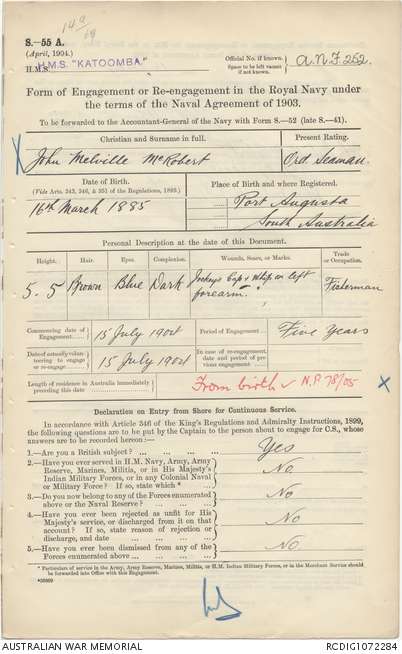 14a/69
S.—55 A.
(April, 1904.)
H.M.S. H.M.S. "KATOOMBA."
Official No. if known.
Space to be left vacant if not known.
A.N.F 252.
Form of Engagement or Re-engagement in the Royal Navy under
the terms of the Naval Agreement of 1903.
To be forwarded to the Accountant-General of the Navy with Form S.—52 (late S.—41).
Christian and Surname in full.
Present Rating.
X John Melville McRobert
Ord Seaman.
Date of Birth.
(Vide Arts. 243, 246, & 351 of the Regulations, 1893.)
Place of Birth and where Registered.
16th March 1885
Port Augusta
South Australia
Personal Description at the date of this Document.
Height. Hair. Eyes. Complexion. Wounds, Scars, or Marks. Trade or Occupation.
5. 5 Brown Blue Dark Jockey's Cap & Whip on left forearm. Fisherman
Commencing date of Engagement.
15 July 1904
Period of Engagement
Five Years
Date of actually volunteering to engage or re-engage
15 July 1904
In case of re-engagement, date and period of previous engagement
Length of residence in Australia immediately preceding this date
From birth ✓ N.P. 78/05 X
Declaration on Entry from Shore for Continuous Service.
In accordance with Article 346 of the King's Regulations and Admiralty Instructions, 1899,
the following questions are to be put by the Captain to the person about to engage for C.S., whose
answers are to be recorded hereon:—
1.—Are you a British subject? ... ... ... Yes
2.—Have you ever served in H.M. Navy, Army, Army
Reserve, Marines, Militia, or in His Majesty's
Indian Military Forces, or in any Colonial Naval
or Military Force? If so, state which * ... ... No
3.—Do you now belong to any of the Forces enumerated
above or the Naval Reserve? ... ... ... No
4.—Have you ever been rejected as unfit for His
Majesty's service, or discharged from it on that
account? If so, state reason of rejection or
discharge, and date ... ... ... No
5.—Have you ever been dismissed from any of the
Forces enumerated above ... ... ... No
* Particulars of service in the Army, Army Reserve, Marines, Militia, or in H.M. Indian Military Forces, or in the Merchant Service should
be forwarded into Office with this Engagement.
AUSTRALIAN WAR MEMORIAL
RCDIG1072284